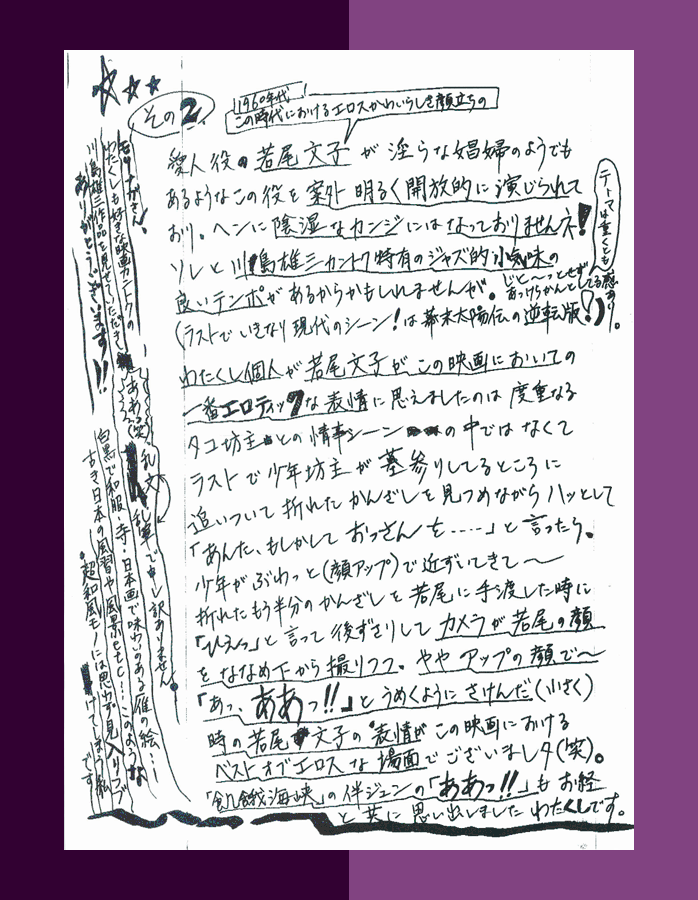 その2
1960年代!
この時代におけるエロスかわいらしき顔立ちの
愛人役の若尾文子が淫らな娼婦のようでも
あるようなこの役を案外明るく開放的に演じられて
おり。ヘンに陰湿なカンジにはなっておりませんネ!
テーマは重くとも
ソレと川島雄三カントク特有のジャズ的小気味の
良いテンポがあるからかもしれませんが。
じと〜っとせず
あっけらかんとしてる感あり。
(ラストでいきなり現代のシーン!は幕末太陽伝の逆転版!)
わたくし個人が若尾文子がこの映画においての
一番エロティックな表情に思えましたのは度重なる
タコ坊主との情事シーンの中ではなくて
ラストで少年坊主が墓参りしてるところに
追いついて折れたかんざしを見つめながらハッとして
「あんた、もしかしておっさんを……」と言ったら。
少年がぶわっと(顔アップ)で近ずいてきて〜
折れたもう半分のかんざしを若尾に手渡した時に
「ひえっ」と言って後ずさりしてカメラが若尾の顔
をななめ下から撮りつつ。ややアップの顔で〜
「あっ、ああっ!!」とうめくようにさけんだ(小さく)
時の若尾文子の表情がこの映画における
ベストオブエロスな場面でございました(笑)。
「飢餓海峡」の伴ジュンの「ああっ!!」もお経
と共に思い出しましたわたくしです。
モリナガさん!
わたくしも好きな映画カントクの
川島雄三作品を見せていただき
ありがとうございます!!
乱文
乱筆で申し訳ありません。
白黒で和服・寺・日本画で味わいのある雁の絵…
古き日本の風習や風景etc…このような
超和風モノには思わず見入りつづ
けてしまう私
です